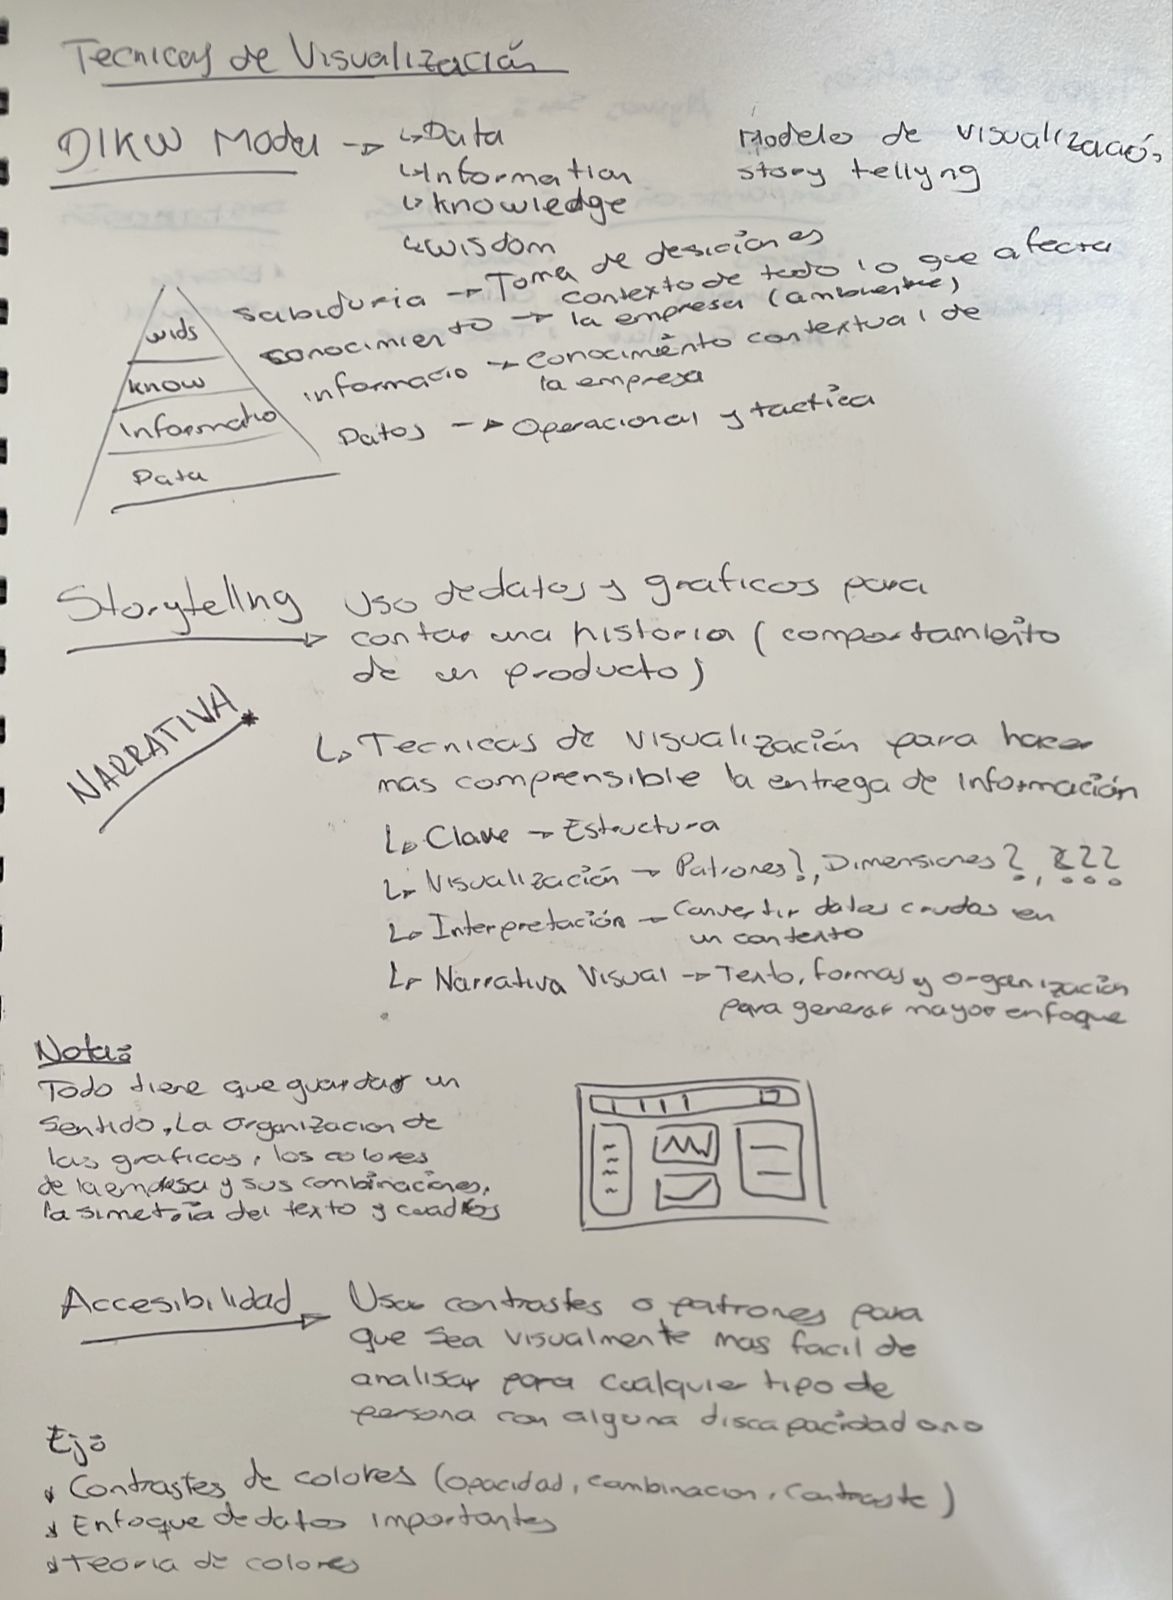 Tecnicas de Visualización
DIKW Model → ↳Data
↳Information
↳Knowledge
↳Wisdom
Modelo de visualización
story tellyng
wids
know
Informatio
Data
Sabiduria → Toma de desiciones
conocimiento → contexto de todo lo que afecta
la empresa (ambiente)
informacio → conocimiento contextual de
la empresa
Datos → Operacional y tactica
Storytellng → Uso de datos y graficos para
contar una historia (comportamiento
de un producto)
NARRATIVA*
↳ Tecnicas de visualización para hacer
mas comprensible la entrega de información
↳ Clave → Estructura
↳ Visualización → Patrones?, Dimensiones?, ???
↳ Interpretación → Convertir datos crudos en
un contexto
↳ Narrativa Visual → Texto, formas y organización
para generar mayor enfoque
Nota:
Todo tiene que guardar un
sentido, La organizacion de
las graficas, los colores
de la empresa y sus combinaciones,
la simetria del texto y cuadros
Accesibilidad → Usar contrastes o patrones para
que sea visualmente mas facil de
analisar para cualquier tipo de
persona con alguna discapacidad o no
Ej:
* Contrastes de colores (opacidad, combinacion, contraste)
* Enfoque de datos importantes
* Teoria de colores